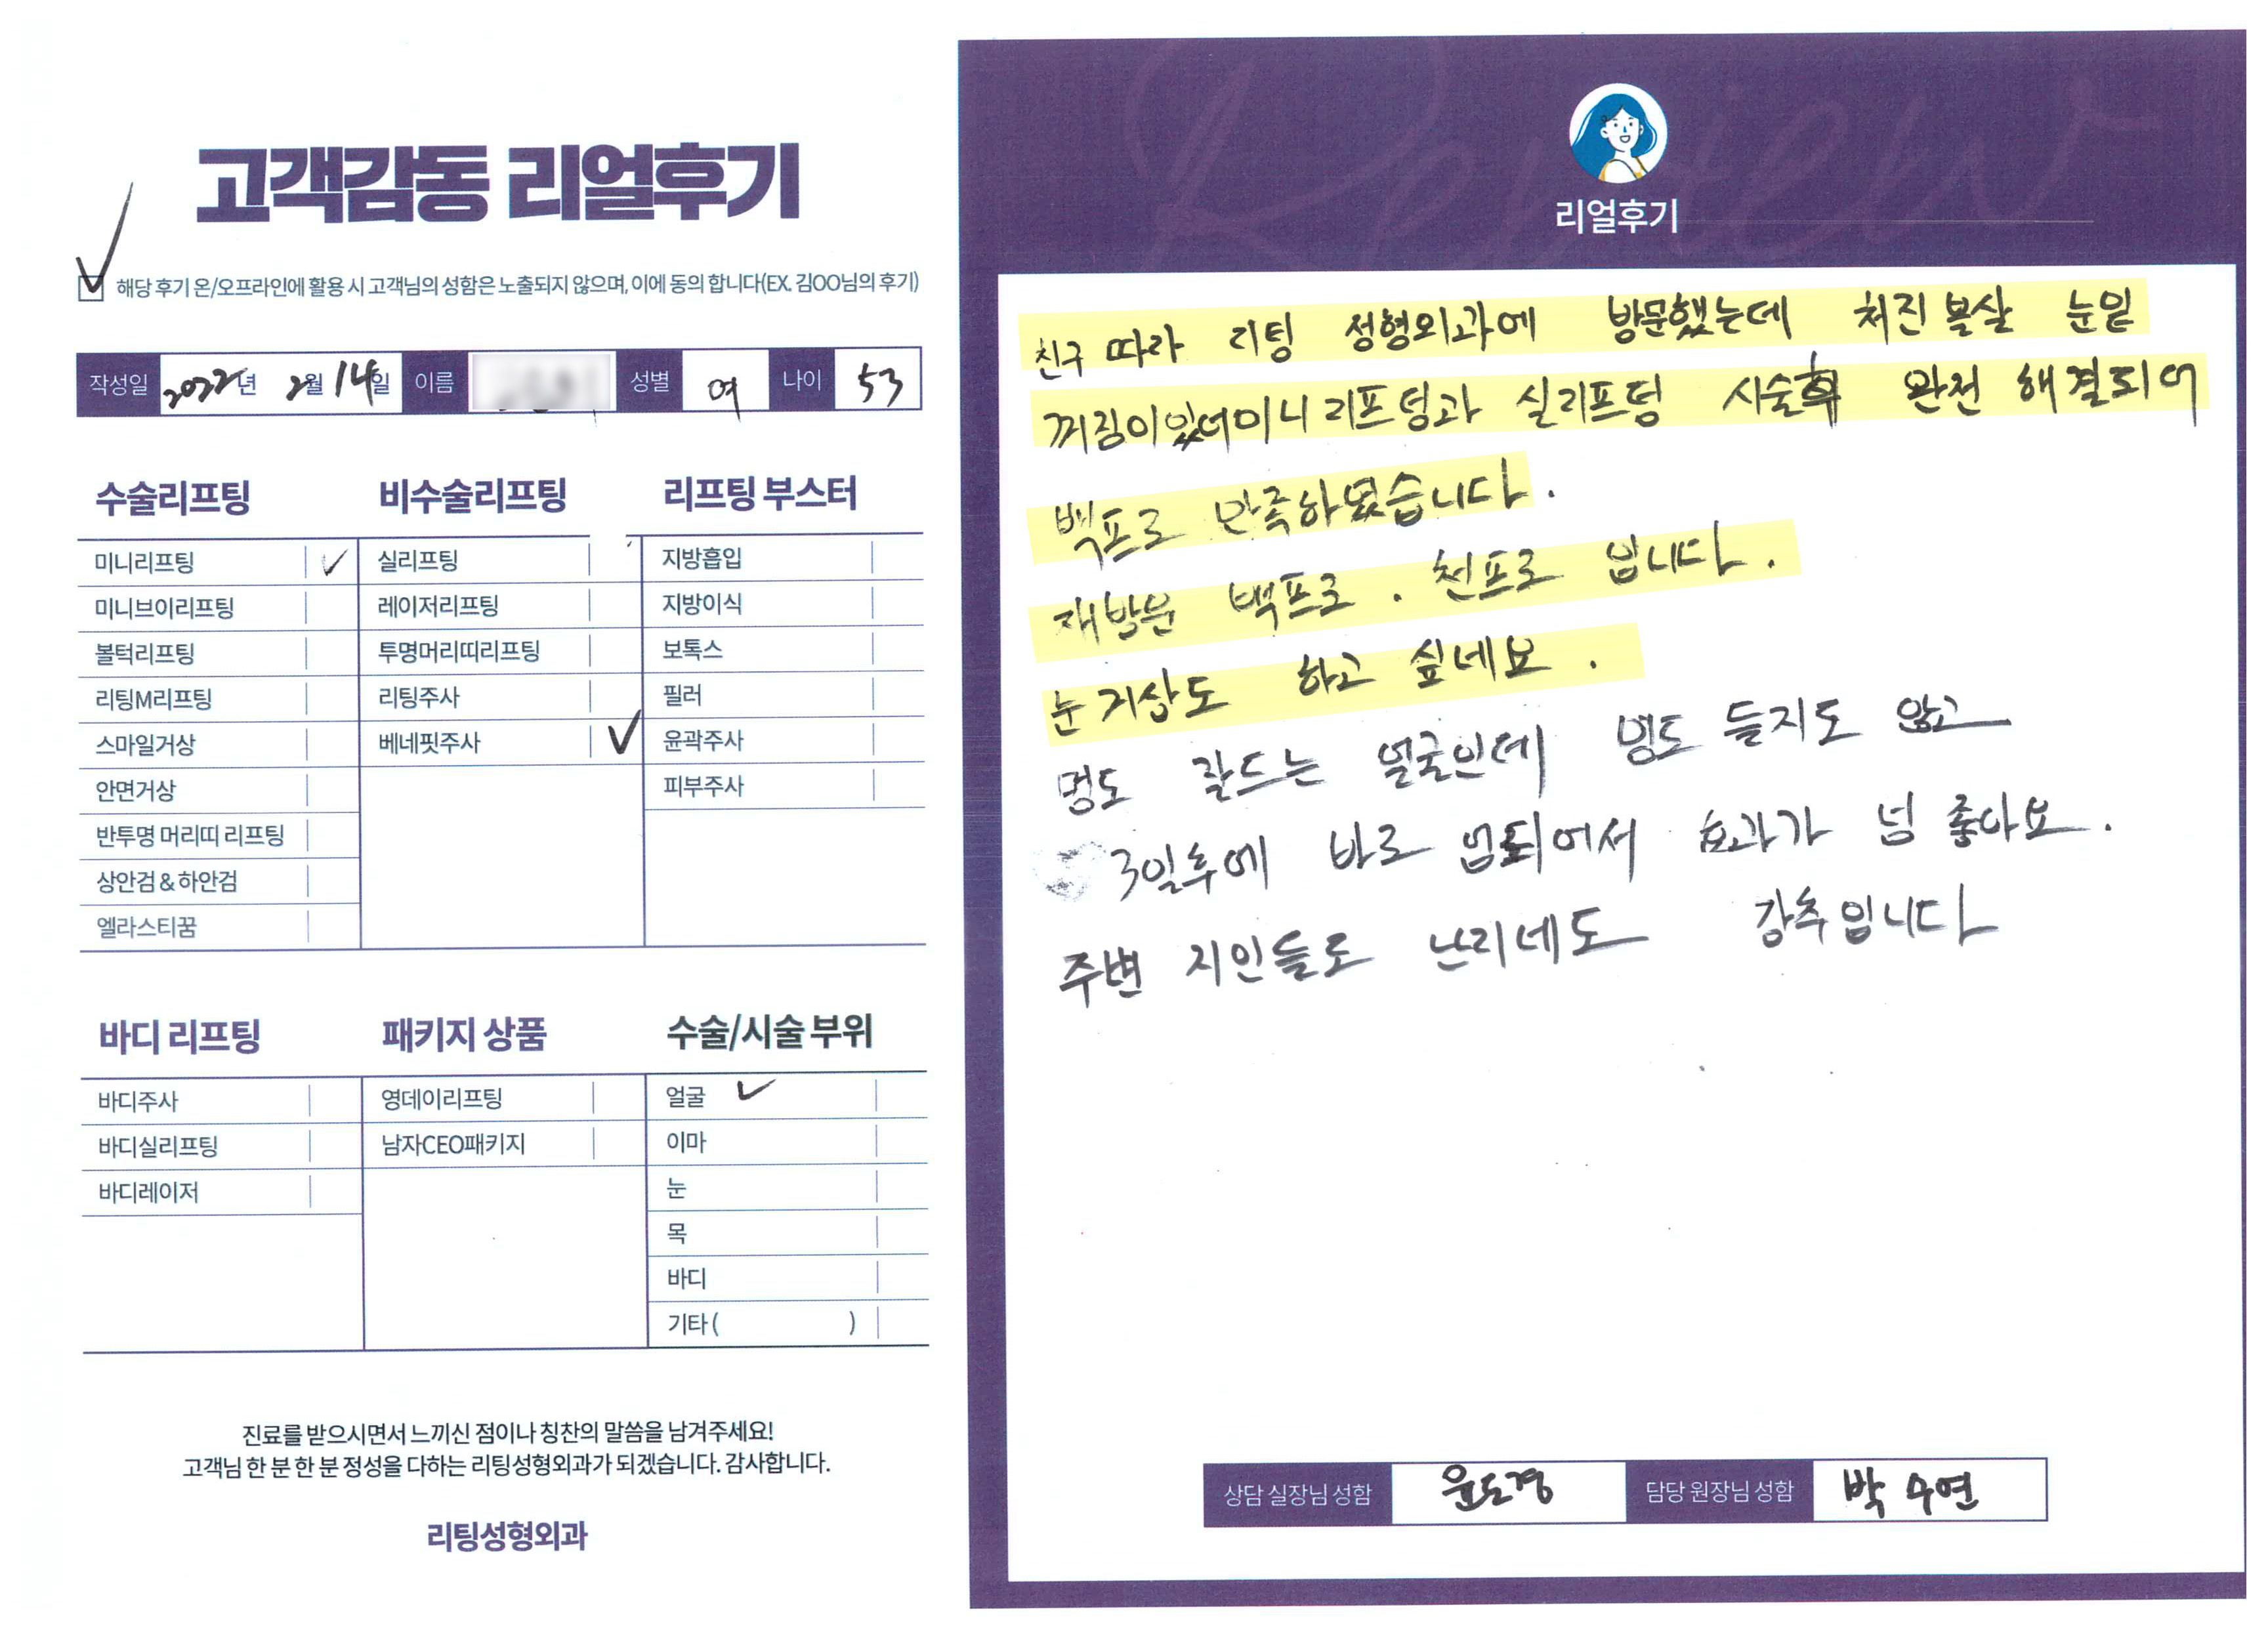 고객감동 리얼후기
해당 후기 온/오프라인에 활용 시 고객님의 성함은 노출되지 않으며, 이에 동의 합니다(EX. 김OO님의 후기)
작성일 2022년 2월 14일 이름 성별 여 나이 53
수술리프팅
미니리프팅
미니브이리프팅
볼턱리프팅
리팅M리프팅
스마일거상
안면거상
반투명 머리띠 리프팅
상안검 & 하안검
엘라스티꿈
비수술리프팅
실리프팅
레이저리프팅
투명머리띠리프팅
리팅주사
베네핏주사
리프팅 부스터
지방흡입
지방이식
보톡스
필러
윤곽주사
피부주사
바디 리프팅
바디주사
바디실리프팅
바디레이저
패키지 상품
영데이리프팅
남자CEO패키지
수술/시술 부위
얼굴
이마
눈
목
바디
기타 ( )
진료를 받으시면서 느끼신 점이나 칭찬의 말씀을 남겨주세요!
고객님 한 분 한 분 정성을 다하는 리팅성형외과가 되겠습니다. 감사합니다.
리팅성형외과
Review
리얼후기
친구 따라 리팅 성형외과에 방문했는데 처진 볼살 눈밑
꺼짐이있어미니리프팅과 실리프팅 시술후 완전 해결되어
백프로 만족하였습니다.
재방문 백프로. 천프로 입니다.
눈거상도 하고 싶네요.
멍도 잘드는 얼굴인데 멍도 들지도 않고
3일후에 바로 업되어서 효과가 넘 좋아요.
주변 지인들도 난리네도 강추입니다
상담 실장님 성함 윤도경 담당 원장님 성함 박수연